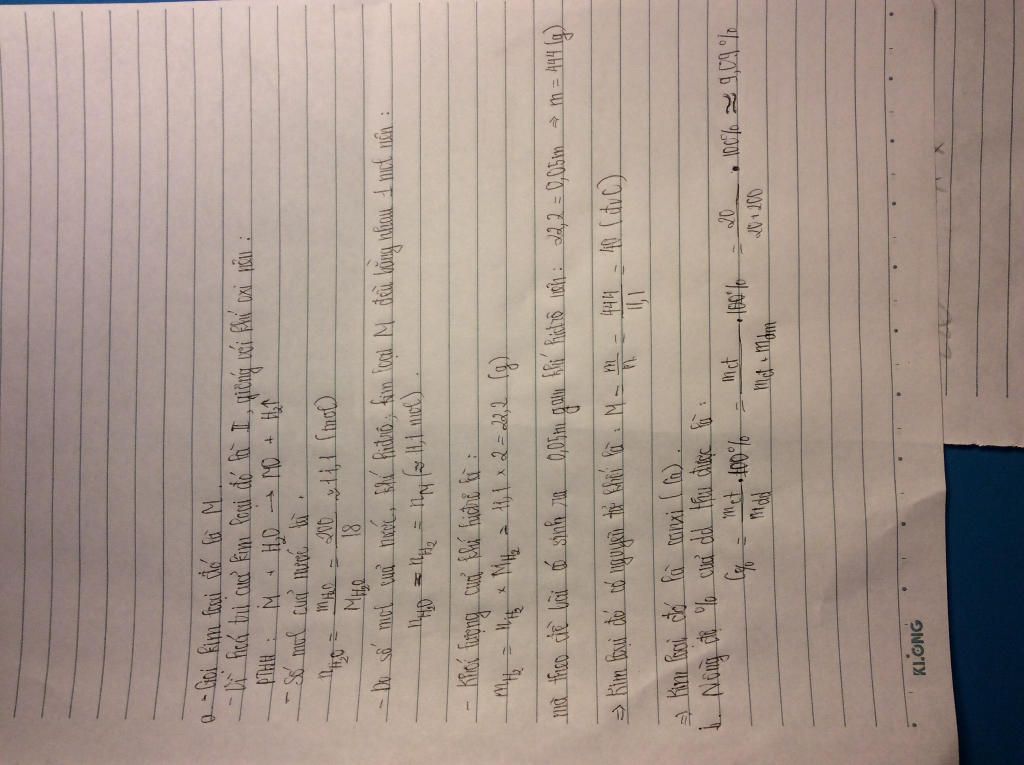 a - Gọi kim loại đó là M.
- Vì hoá trị của kim loại đó là II, giống với khí oxi nên:
PTHH: M + H₂O → MO + H₂↑
- Số mol của nước là:
n_H₂O = m_H₂O / M_H₂O = 200 / 18 ≈ 11,1 (mol)
- Do số mol của nước, khí hidrô, kim loại M đều bằng nhau 1 mol nên:
n_H₂O = n_H₂ = n_M (≈ 11,1 mol).
- Khối lượng của khí hidrô là:
m_H₂ = n_H₂ × M_H₂ = 11,1 × 2 = 22,2 (g)
mà theo đề bài có sinh ra 0,05m gam khí hidrô nên: 22,2 = 0,05m ⇒ m = 444 (g)
⇒ Kim loại đó có nguyên tử khối là: M = m / n = 444 / 11,1 = 40 (đvC)
⇒ Kim loại đó là canxi (Ca).
b. Nồng độ % của dd thu được là:
C% = mct / mdd · 100% = mct / mct + mdm · 100% = 20 / 20+200 · 100% ≈ 9,09%
KLONG